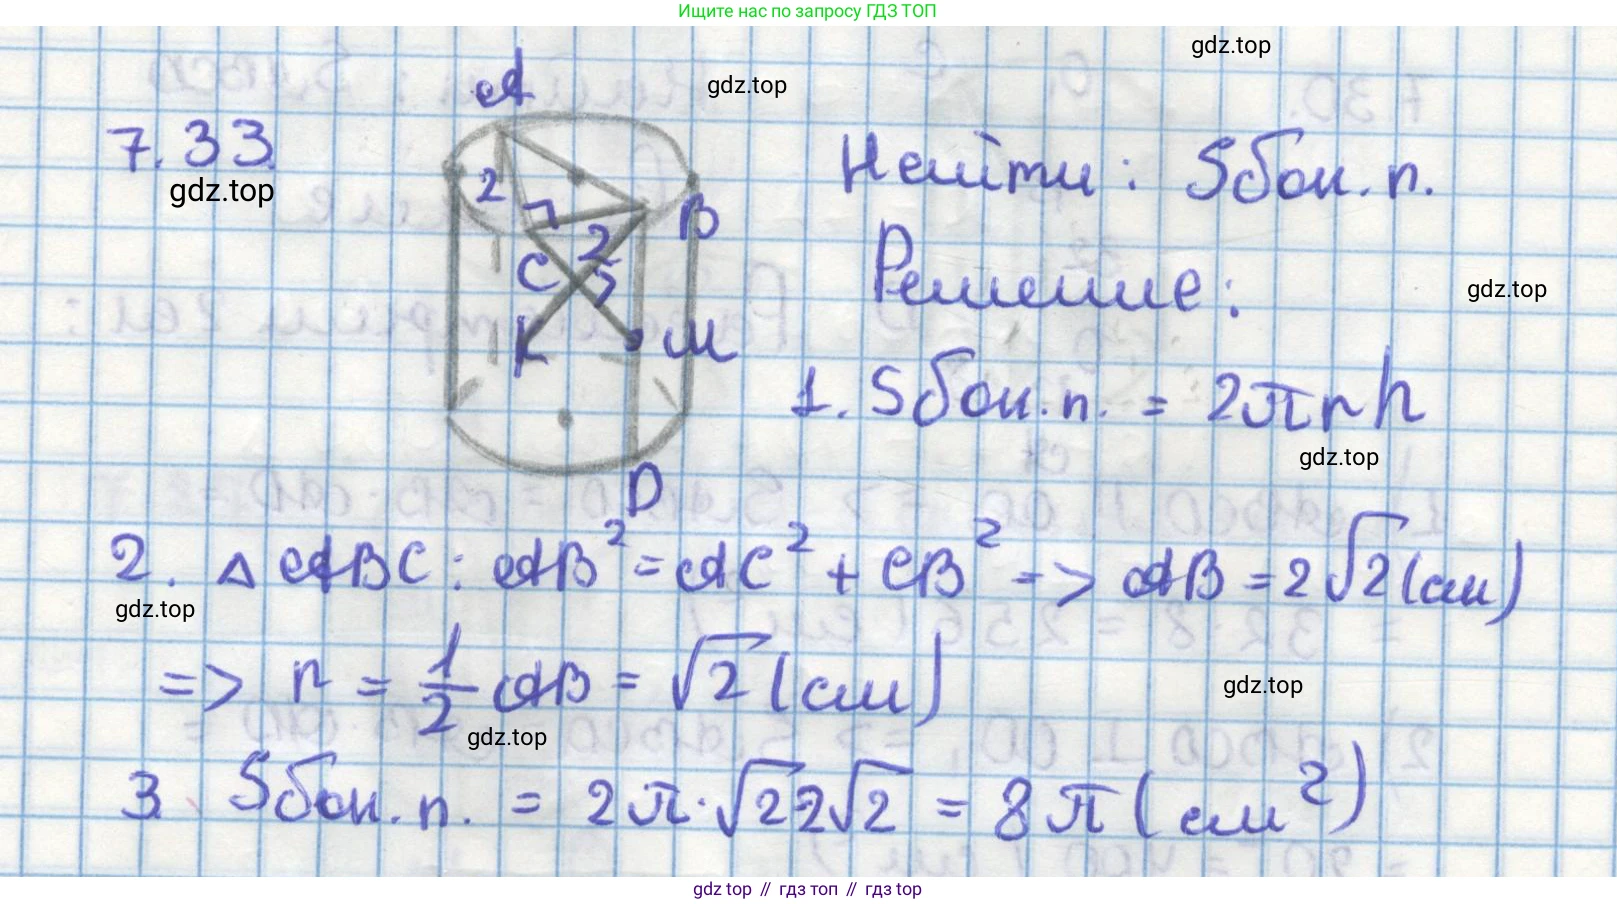 Ищите нас по запросу ГДЗ ТОП
gdz.top
gdz.top
7.33
gdz.top
A
2
B
C
2
K
M
D
Найти: Sбок.п.
Решение:
gdz.top
1. Sбок.п. = 2πrh
gdz.top
2. △ABC: AB² = AC² + CB² => AB = 2√2 (см)
gdz.top
=> r = 1/2 AB = √2 (см)
gdz.top
gdz.top
3. Sбок.п. = 2π·√2 2√2 = 8π (см²)
gdz.top // гдз топ // гдз.top